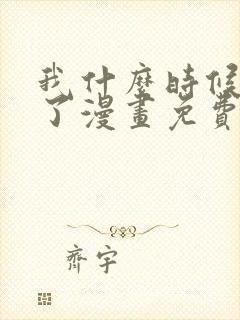 我什麼時候
了漫畫免費
齊宇